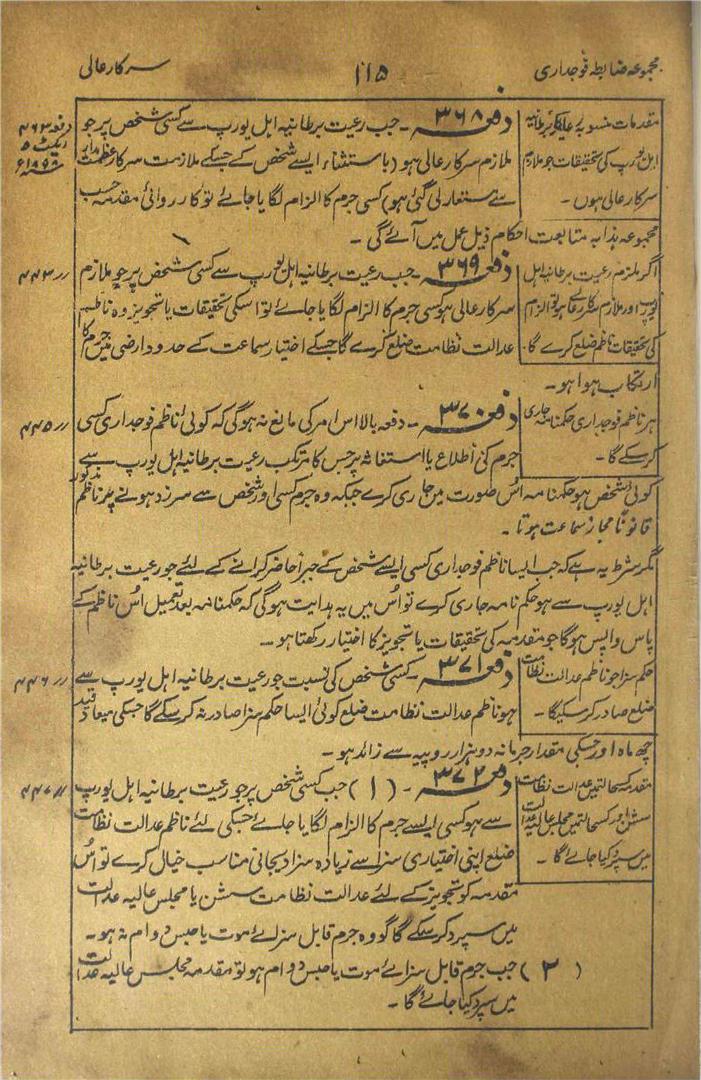 مجموعہ ضابطہ فوجداری
۱۱۵
سرکار عالی
مقدمات منسوبہ رعایائے برطانیہ
اہل یورپ کی تحقیقات جو ملازم
سرکار عالی ہوں ۔
دفعہ ۳۶۸ ۔ جب رعیت برطانیہ اہل یورپ سے کسی شخص پر جو
ملازم سرکار عالی ہو (باستثناء ایسے شخص کے جسکے ملازمت سرکار عظمت مدار
سے مستعار لی گئی ہو) کسی جرم کا الزام لگایا جائے تو کارروائی مقدمہ حسب
مجموعہ ہذا بہ متابعت احکام ذیل عمل میں آئے گی ۔
دفعہ ۴۴۳
ایکٹ ۵
۱۸۹۸ء
اگر ملزم رعیت برطانیہ اہل
یورپ اور ملازم سرکار عالی ہو تو الزام
کی تحقیقات ناظم ضلع کرے گا ۔
دفعہ ۳۶۹ ۔ جب رعیت برطانیہ اہل یورپ سے کسی شخص پر جو ملازم
سرکار عالی ہو کسی جرم کا الزام لگایا جائے تو اسکی تحقیقات یا تجویز وہ ناظم
عدالت نظامت ضلع کرے گا جسکے اختیار سماعت کے حدود ارضی میں جرم کا
ارتکاب ہوا ہو ۔
// ۴۴۳
ہر ناظم فوجداری حکمنامہ جاری
کر سکے گا ۔
دفعہ ۳۷۰ ۔ دفعہ بالا اس امر کی مانع نہ ہوگی کہ کوئی ناظم فوجداری کسی
جرم کی اطلاع یا استغاثہ پر جس کا مرتکب رعیت برطانیہ اہل یورپ سے
کوئی شخص ہو حکمنامہ اُس صورت میں جاری کرے جبکہ وہ جرم کسی اور شخص سے سرزد ہونے پر ناظم مذکور
قانوناً مجاز سماعت ہوتا ۔
// ۴۴۵
مگر شرط یہ ہے کہ جب ایسا ناظم فوجداری کسی ایسے شخص کے جبراً حاضر کرانے کے لئے جو رعیت برطانیہ
اہل یورپ سے ہو حکم نامہ جاری کرے تو اُس میں یہ ہدایت ہوگی کہ حکمنامہ بعد تعمیل اُس ناظم کے
پاس واپس ہوگا جو مقدمہ کی تحقیقات یا تجویز کا اختیار رکھتا ہو ۔
حکم سزا جو ناظم عدالت نظامت
ضلع صادر کر سکیگا ۔
دفعہ ۳۷۱ ۔ کسی شخص کی نسبت جو رعیت برطانیہ اہل یورپ سے
ہو ناظم عدالت نظامت ضلع کوئی ایسا حکم سزا صادر نہ کر سکے گا جسکی میعاد قید
چھ ماہ اور جسکی مقدار جرمانہ دو ہزار روپیہ سے زائد ہو ۔
// ۴۴۶
مقدمہ کس حالت میں عدالت نظامت
سشن اور کس حالت میں مجلس عالیہ عدالت
میں سپرد کیا جائے گا ۔
دفعہ ۳۷۲ ۔ (۱) جب کسی شخص پر جو رعیت برطانیہ اہل یورپ
سے ہو کسی ایسے جرم کا الزام لگایا جائے جسکی لئے ناظم عدالت نظامت
ضلع اپنی اختیاری سزا سے زیادہ سزا دیجانی مناسب خیال کرے تو اُس
مقدمہ کو تجویز کے لئے عدالت نظامت سشن یا مجلس عالیہ عدالت
میں سپرد کر سکے گا گو وہ جرم قابل سزائے موت یا حبس دوام نہ ہو ۔
// ۴۴۷
(۲) جب جرم قابل سزائے موت یا حبس دوام ہو تو مقدمہ مجلس عالیہ عدالت
میں سپرد کیا جائے گا ۔